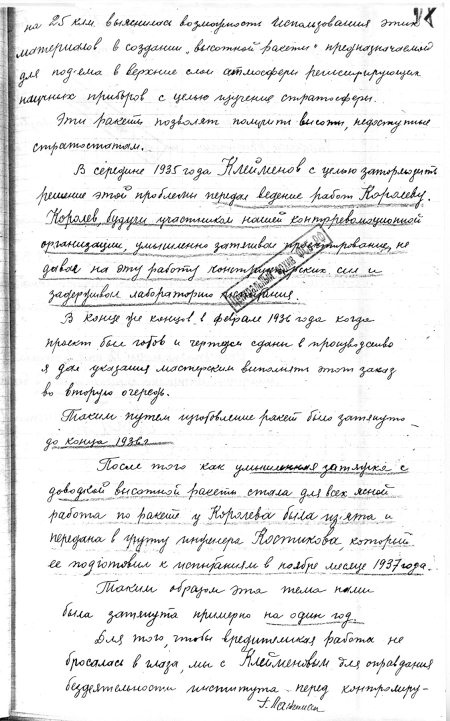 на 25 клм. выяснилась возможность использования этих
материалов в создании „высотной ракеты" предназначаемой
для под-ема в верхние слои атмосферы регистрирующих
научных приборов с целью изучение стратосферы.
Эти ракеты позволят получить высоты, недоступные
стратостатам.
В середине 1935 года Клейменов с целью затормозить
решение этой проблемы передал ведение работ Королеву.
Королев, будучи участником нашей контрреволюционной
организации, умышленно затягивал проектирование, не
давал на эту работу конструкторских сил и
задерживал лабораторию
В конце же концов в феврале 1936 года когда
проект был готов и чертежи сданы в производство
я дал указания мастерским выполнять этот заказ
во вторую очередь.
Таким путем изготовление ракет было затянуто
до конца 1936 г
После того как умышленная затяжка с
доводкой высотной ракеты стала для всех ясной
работа по ракете у Королева была из'ята и
передана в группу инженера Костикова, который
ее подготовил к испытаниям в ноябре месяце 1937 года.
Таким образом эта тема нами
была затянута примерно на один год.
Для того, чтобы вредительская работа не
бросалась в глаза, мы с Клейменовым для оправдания
бездеятельности института перед контролиру-
Г. Лангемак